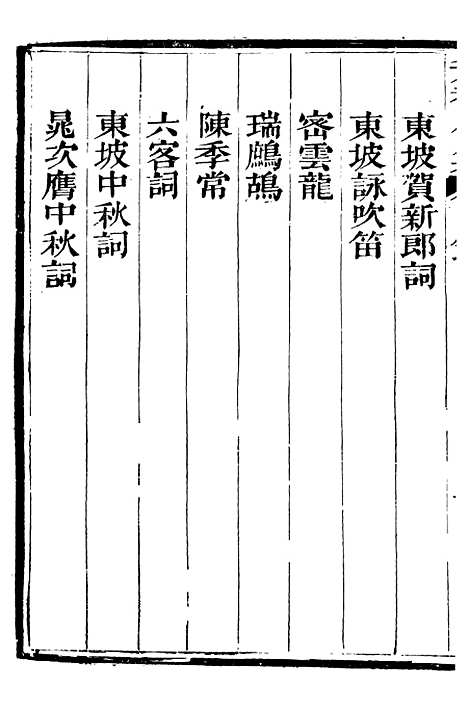 東坡賀新郎詞
東坡詠吹笛
密雲龍
瑞鷓鴣
陳季常
六客詞
東坡中秋詞
晁次膺中秋詞